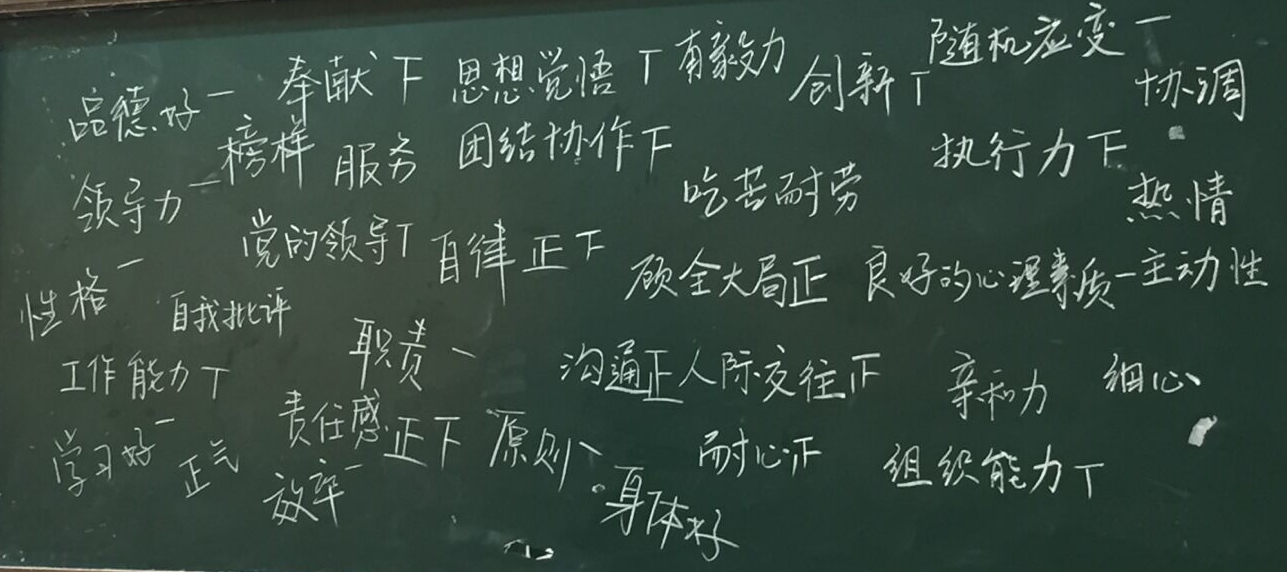 品德好一
奉献下
思想觉悟丅
有毅力
创新丅
随机应变一
协调
榜样
服务
团结协作下
执行力下
领导力一
吃苦耐劳
热情
党的领导丅
自律正下
顾全大局正
良好的心理素质一
主动性
性格一
自我批评
工作能力丅
职责、
沟通正
人际交往正
亲和力
细心
学习好一
正气
责任感正下
原则、
耐心正
组织能力丅
效率一
身体好